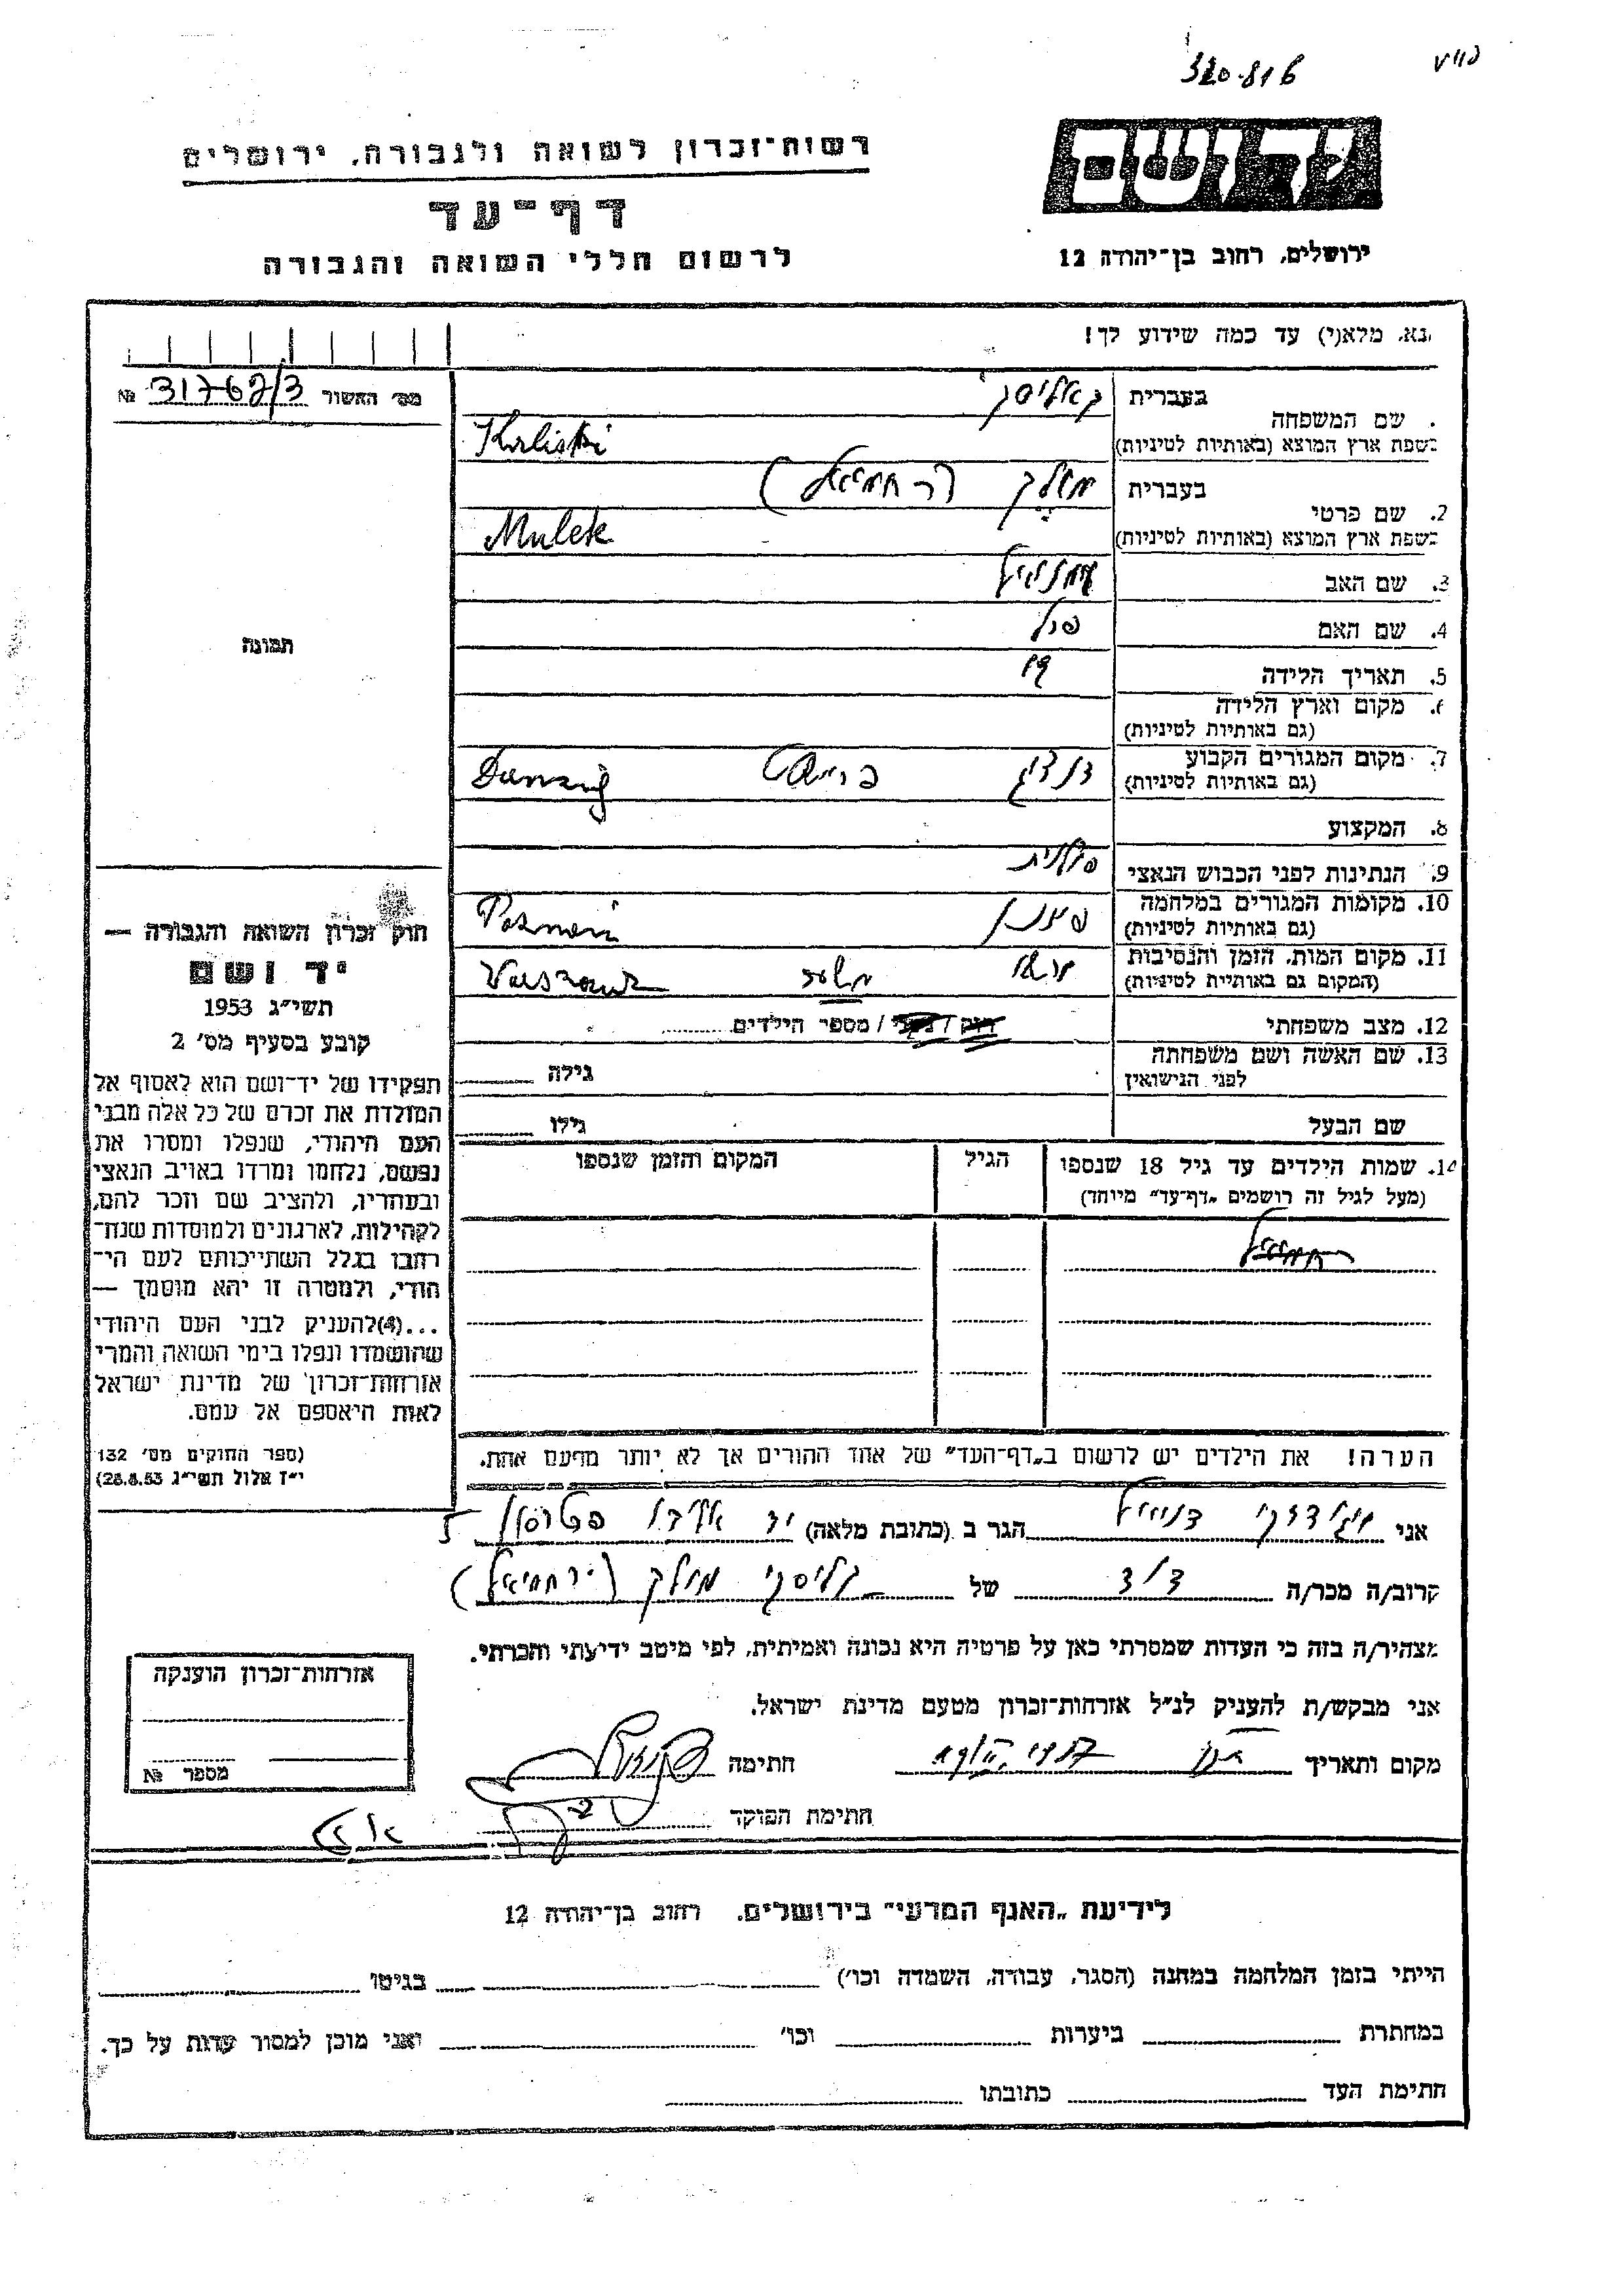 320.816
יד ושם
רשות־זכרון לשואה ולגבורה, ירושלים
דף־עד
לרשום חללי השואה והגבורה
ירושלים, רחוב בן־יהודה 12
נא, מלא(י) עד כמה שידוע לך!
מס׳ האשור 31762/3 №
תמונה
שם המשפחה
בעברית קאליסקי
בשפת ארץ המוצא (באותיות לטיניות) Kaliski
2. שם פרטי
בעברית מולק (ירחמיאל)
בשפת ארץ המוצא (באותיות לטיניות) Mulek
3. שם האב
4. שם האם
5. תאריך הלידה 19
6. מקום וארץ הלידה
(גם באותיות לטיניות)
7. מקום המגורים הקבוע דנציג Danzig
(גם באותיות לטיניות)
8. המקצוע
9. הנתינות לפני הכבוש הנאצי פולנית
10. מקומות המגורים במלחמה פוזנן Poznań
(גם באותיות לטיניות)
11. מקום המות, הזמן והנסיבות
(המקום גם באותיות לטיניות)
12. מצב משפחתי
רוק / נשוי / מספר הילדים
13. שם האשה ושם משפחתה
לפני הנישואין
גילה
שם הבעל
גילו
14. שמות הילדים עד גיל 18 שנספו
(מעל לגיל זה רושמים „דף־עד״ מיוחד)
הגיל
המקום והזמן שנספו
הערה! את הילדים יש לרשום ב„דף־העד״ של אחד ההורים אך לא יותר מפעם אחת.
חוק זכרון השואה והגבורה —
יד ושם
תשי״ג 1953
קובע בסעיף מס׳ 2
תפקידו של יד־ושם הוא לאסוף אל
המולדת את זכרם של כל אלה מבני
העם היהודי, שנפלו ומסרו את
נפשם, נלחמו ומרדו באויב הנאצי
ובעוזריו, ולהציב שם וזכר להם,
לקהילות, לארגונים ולמוסדות שנח־
רבו בגלל השתייכותם לעם הי־
הודי, ולמטרה זו יהא מוסמך —
...(4)להעניק לבני העם היהודי
שהושמדו ונפלו בימי השואה והמרי
אזרחות־זכרון של מדינת ישראל
לאות היאספם אל עמם.
(ספר החוקים מס׳ 132
י״ז אלול תשי״ג 28.8.53)
אני דניאל הגר ב (כתובת מלאה) יד
קרוב/ה מכר/ה דוד של קליסקי מולק (ירחמיאל)
מצהיר/ה בזה כי העדות שמסרתי כאן על פרטיה היא נכונה ואמיתית, לפי מיטב ידיעתי והכרתי.
אני מבקש/ת להעניק לנ״ל אזרחות־זכרון מטעם מדינת ישראל.
מקום ותאריך חתימה
חתימת הפוקד
אזרחות־זכרון הוענקה
מספר №
לידיעת „האגף המדעי״ בירושלים, רחוב בן־יהודה 12
הייתי בזמן המלחמה במחנה (הסגר, עבודה, השמדה וכו׳) בגיטו
במחתרת ביערות וכו׳ ואני מוכן למסור עדות על כך.
חתימת העד כתובתו